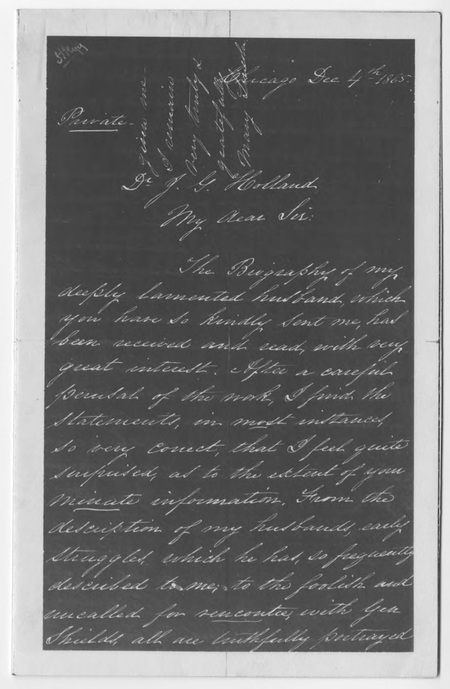 Chicago Dec 4th 1865.
Private.
Dr J. G. Holland
My dear Sir:
The Biography of my
deeply lamented husband, which
you have so kindly sent me, has
been received and read, with very
great interest. After a careful
perusal of the work, I find the
statements, in most instances,
so very correct, that I feel quite
surprised, as to the extent of your
minute information. From the
description of my husband's, early
struggles, which he has, so frequently
described to me, to the foolish and
uncalled for rencontre, with Gen
Shields, all are truthfully portrayed
given me.
I remain
very truly &
gratefully
Mary Lincoln.